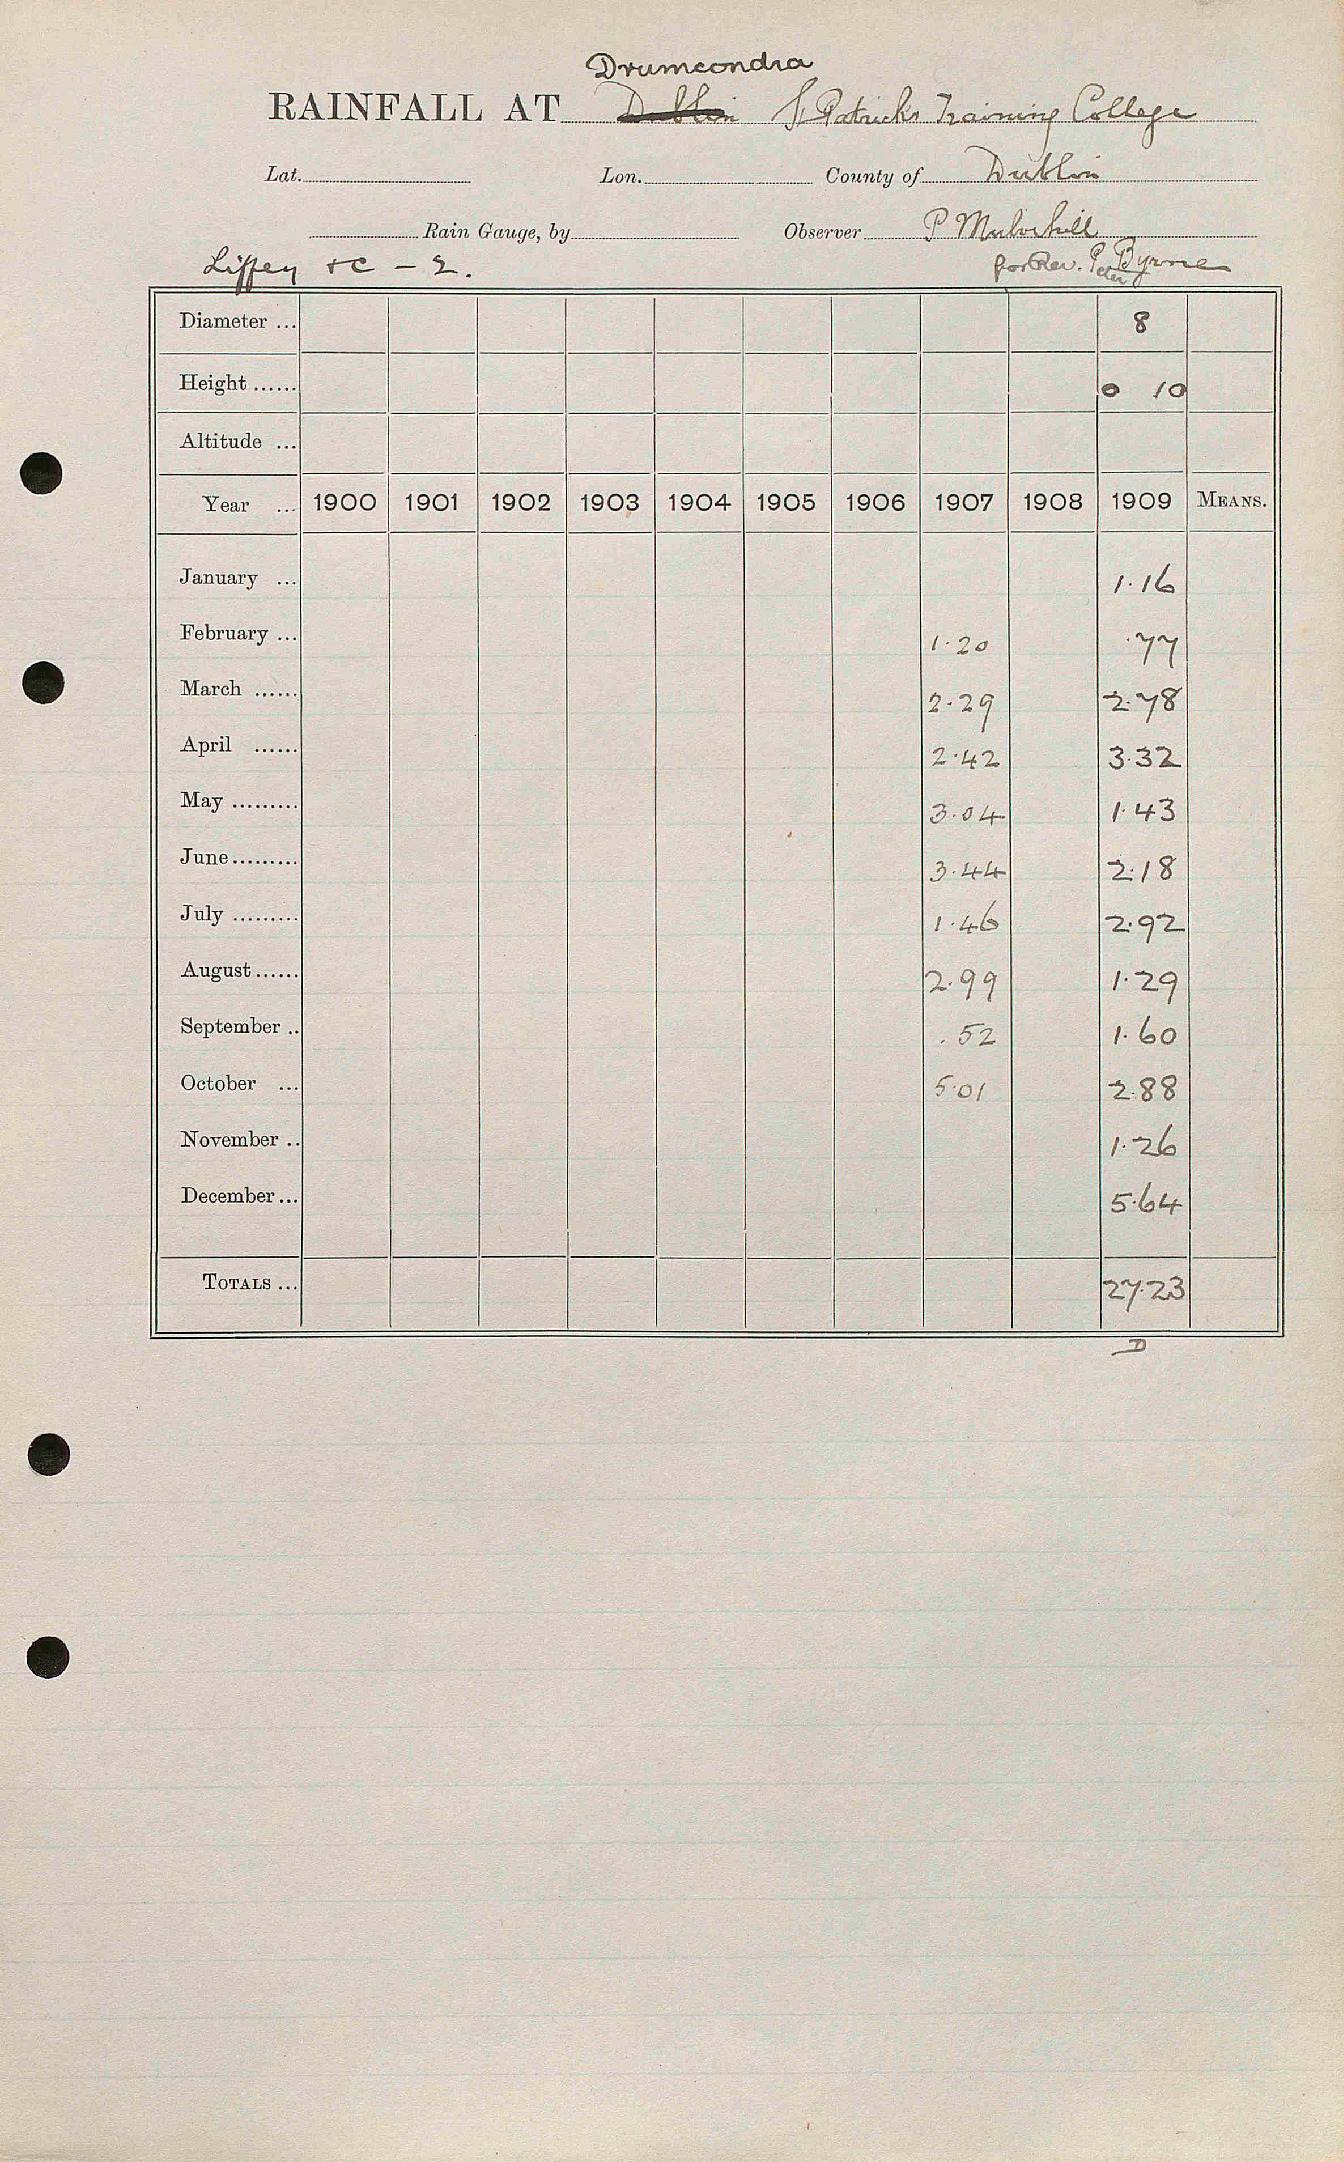 Drumcondra
RAINFALL AT Dublin St Patricks Training College
Lat. Lon. County of Dublin
Rain Gauge, by Observer P Mulvihill
Liffey &c - 2. for Rev. Peter Byrne
Diameter ... 8
Height ...... 0 10
Altitude ...
Year ... 1900 1901 1902 1903 1904 1905 1906 1907 1908 1909 MEANS.
January ... 1.16
February ... 1.20 .77
March ...... 2.29 2.78
April ...... 2.42 3.32
May ......... 3.04 1.43
June ......... 3.44 2.18
July ......... 1.46 2.92
August ...... 2.99 1.29
September .. .52 1.60
October ... 5.01 2.88
November .. 1.26
December ... 5.64
TOTALS ... 27.23
D